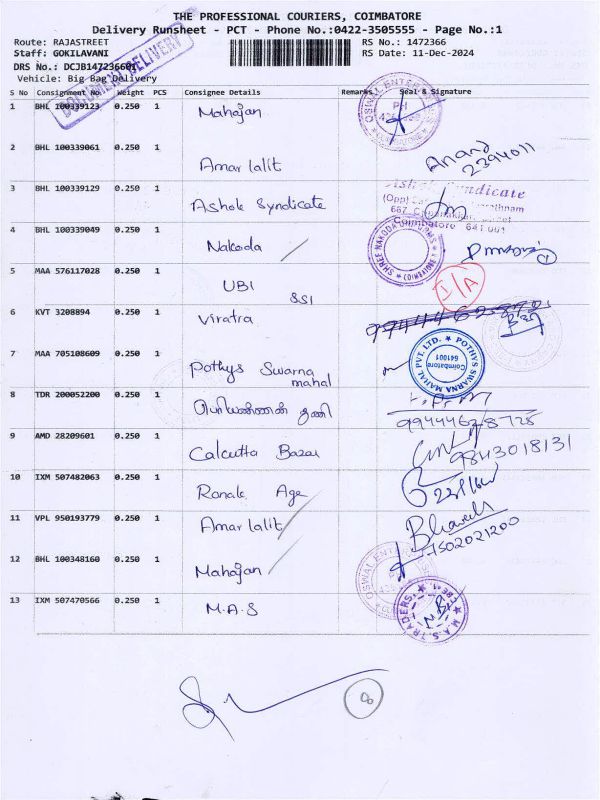 THE PROFESSIONAL COURIERS, COIMBATORE
Delivery Runsheet - PCT - Phone No.:0422-3505555 - Page No.:1
Route: RAJASTREET RS No.: 1472366
Staff: GOKILAVANI RS Date: 11-Dec-2024
DRS No.: DCJB147236601
Vehicle: Big Bag Delivery
S No Consignment No. Weight PCS Consignee Details Remarks Seal & Signature
1 BHL 100339123 0.250 1 Mahajan
2 BHL 100339061 0.250 1 Amar lalit Anand
3 BHL 100339129 0.250 1 Ashok Syndicate
Ashok Syndicate
(Opp)
Coimbatore 641 001
4 BHL 100339049 0.250 1 Nakoda
SHREE NAKODA
5 MAA 576117028 0.250 1 UBI
SSI
I/A
6 KVT 3208894 0.250 1 Viratra
7 MAA 705108609 0.250 1 Pothys Swarna mahal
POTHYS SWARNA MAHAL PVT. LTD.
Coimbatore
641001
8 TDR 200052200 0.250 1
9944468728
9 AMD 28209601 0.250 1 Calcutta Bazar
9843018131
10 IXM 507482063 0.250 1 Ronak Age
11 VPL 950193779 0.250 1 Amar lalit Bhavesh
7502021200
12 BHL 100348160 0.250 1 Mahajan
13 IXM 507470566 0.250 1 M.A.S
M.A.S. TRADERS
8